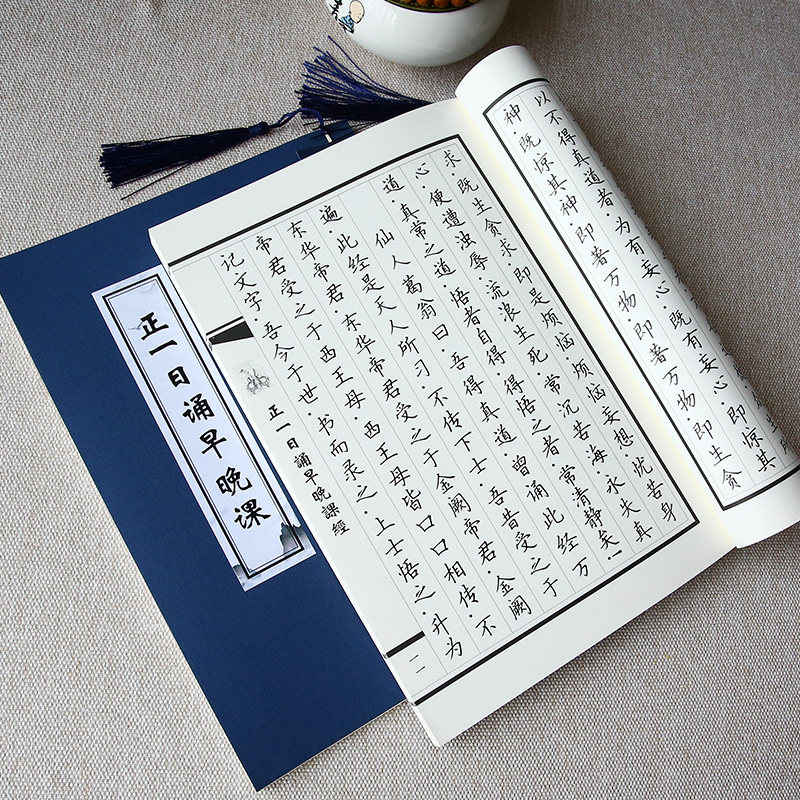 以不得真道者·为有妄心·既有妄心·即惊其
神·既惊其神·即著万物·即著万物·即生贪
求·既生贪求·即是烦恼·烦恼妄想忧苦身
心·便遭浊辱·流浪生死·常沉苦海·永失真
道·真常之道·悟者自得·得悟之者·常清静矣·
仙人葛翁曰·吾得真道·曾诵此经万
遍·此经是天人所习·不传下士·吾昔受之于
东华帝君·东华帝君受之于金阙帝君·金阙
帝君受之于西王母·西王母皆口口相传·不
记文字·吾今于世·书而录之·上士悟之·升为
正一日誦早晚課經
二
正一日诵早晚课